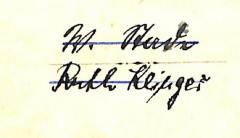 W. Stade
Ruth Klinger